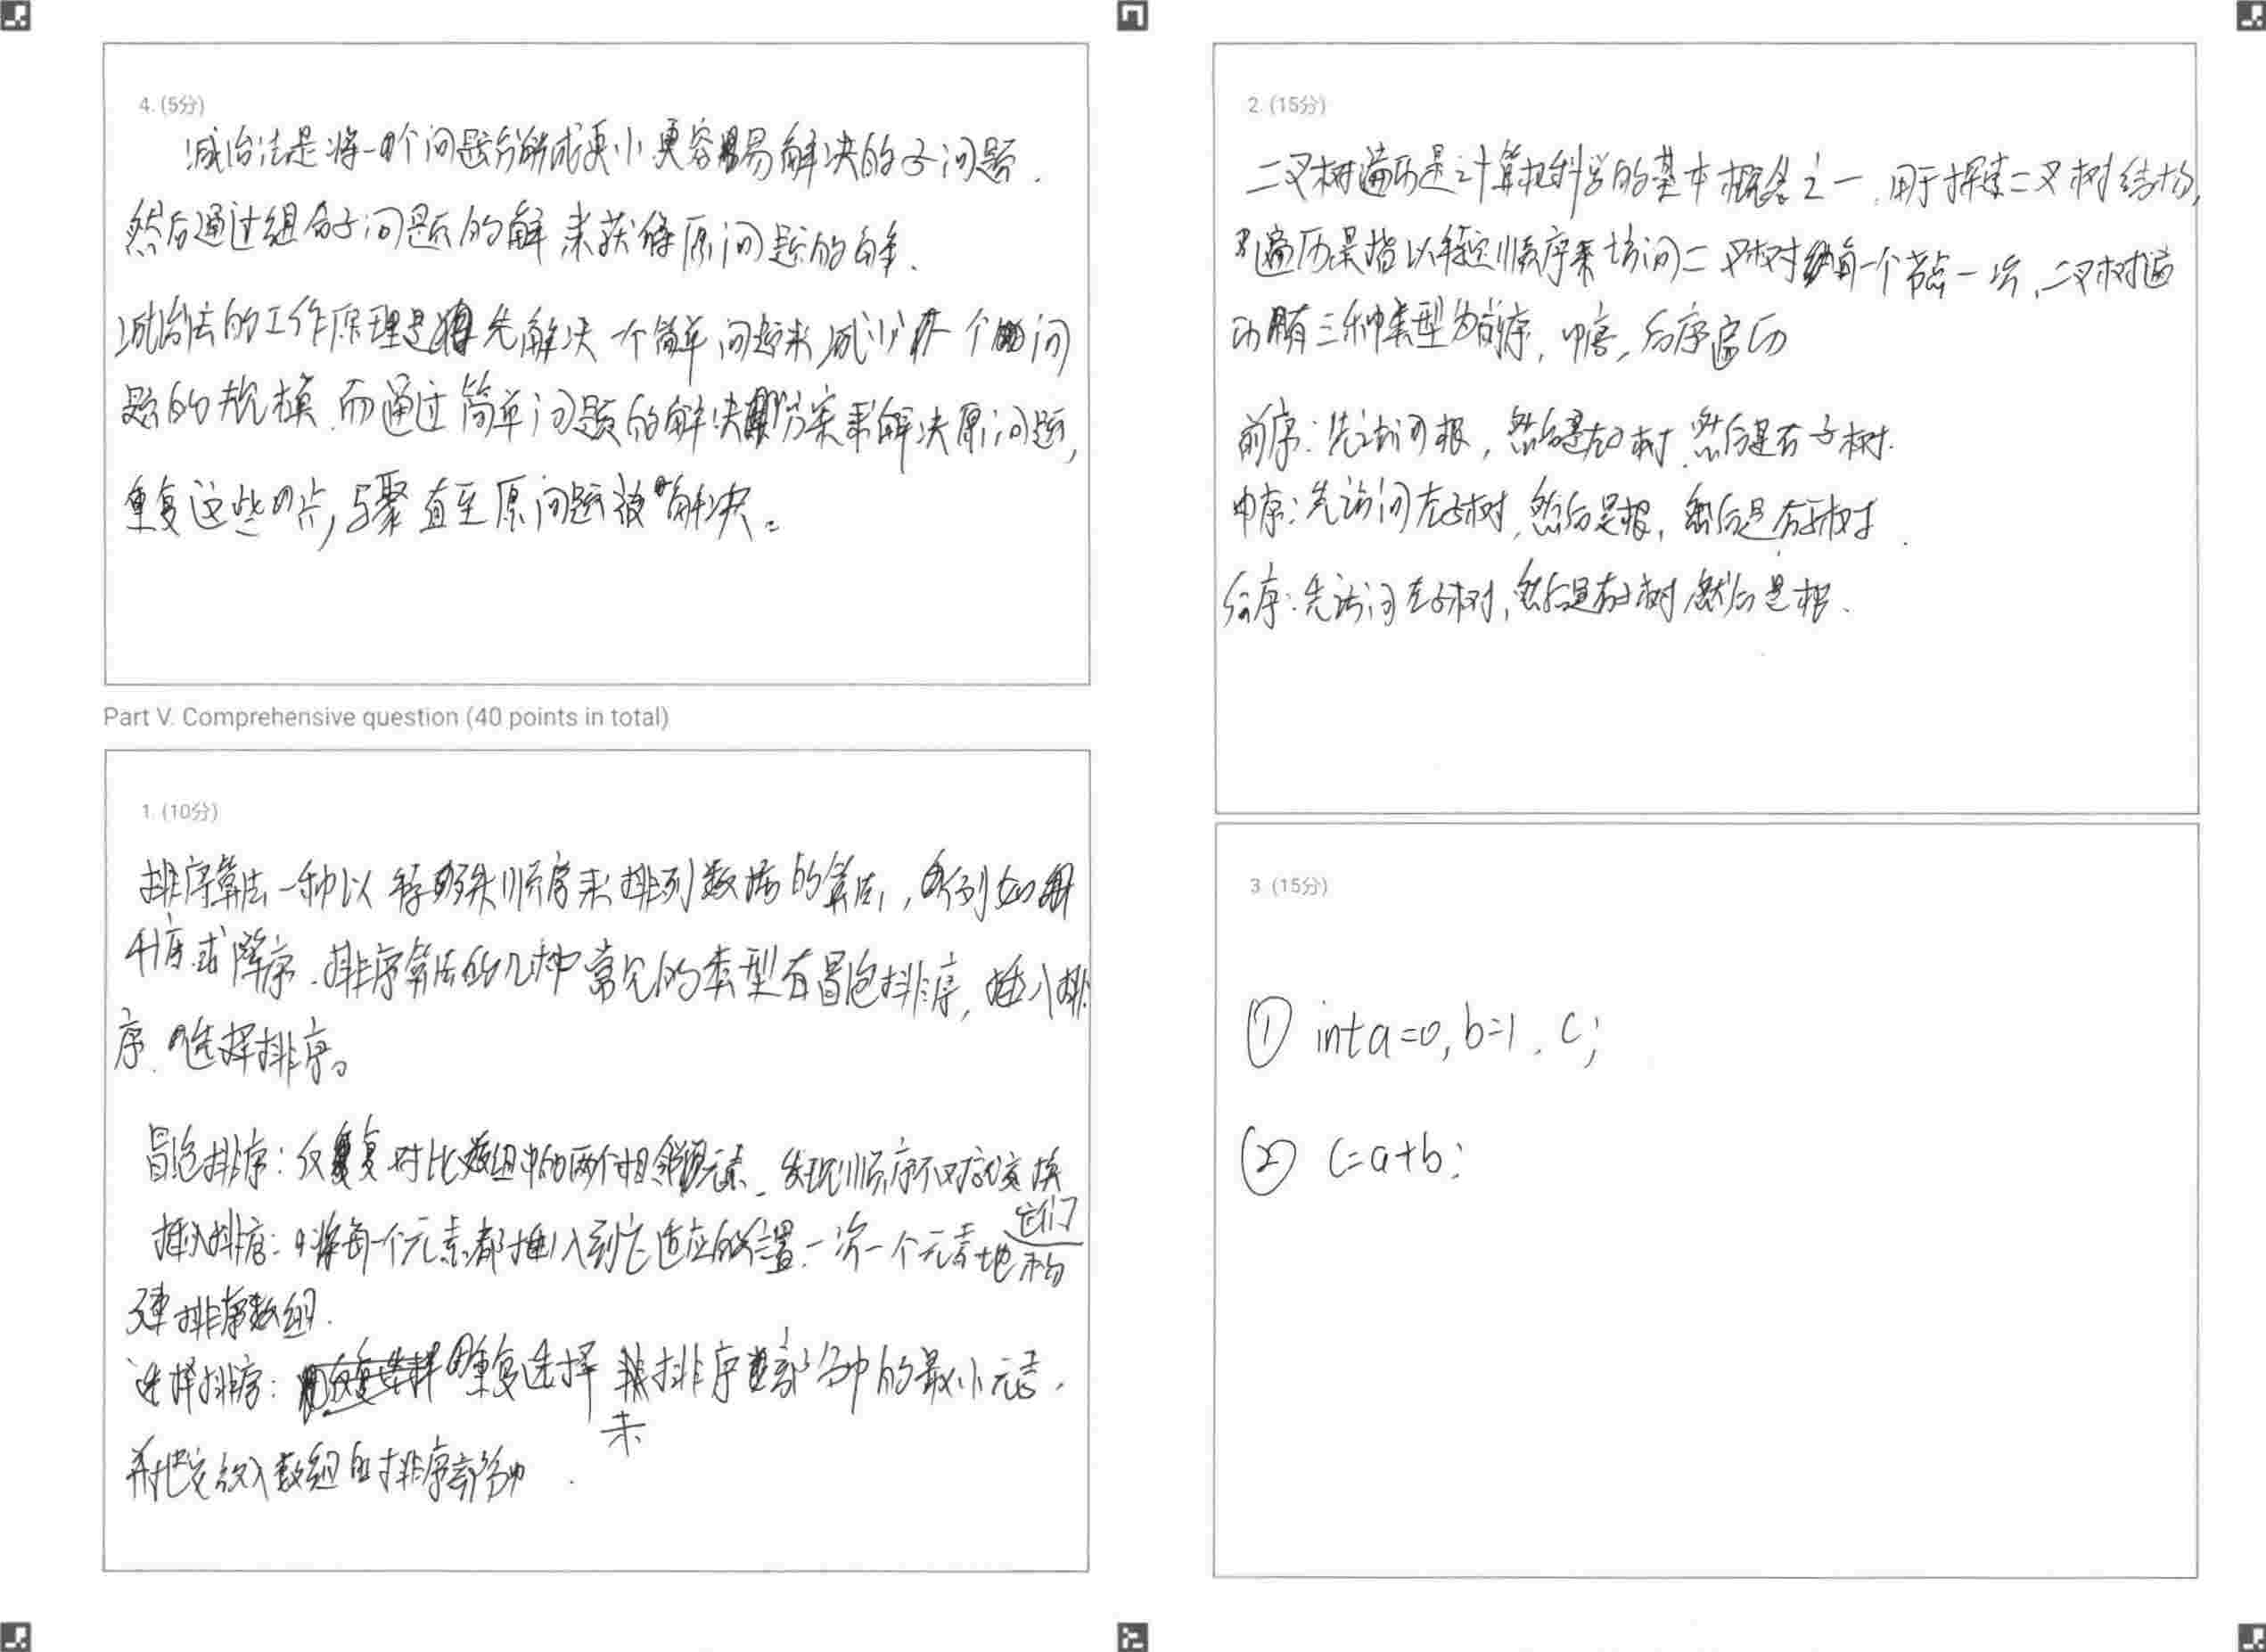 4. (5分)
减治法是将一个问题分解成更小更容易解决的子问题.
然后通过组合子问题的解来获得原问题的解.
减治法的工作原理是先解决一个简单问题来减少个问
题的规模.而通过简单问题的解决方案来解决原问题,
重复这些步骤直至原问题被解决。
Part V. Comprehensive question (40 points in total)
1. (10分)
排序算法一种以顺序来排列数据的算法,例如
升序或降序.排序算法的几种常见的类型有冒泡排序,插入排
序.选择排序。
冒泡排序:反复对比数组中的两个相邻元素、发现顺序不对就交换
它们
插入排序:将每一个元素都插入到它适应的位置.一次一个元素地构
建排序数组.
选择排序:重复选择未排序部分中的最小元素.
并把它放入数组的排序部分中.
2. (15分)
二叉树遍历是计算机科学的基本概念之一.用于探索二叉树结构,
遍历是指以特定顺序来访问二叉树每一个节点一次,二叉树遍
历有三种类型为前序,中序,后序遍历
前序:先访问根,然后是左子树.然后是右子树.
中序:先访问左子树,然后是根,然后是右子树.
后序:先访问左子树,然后是右子树然后是根.
3 (15分)
① int a=0, b=1, c;
② c=a+b;